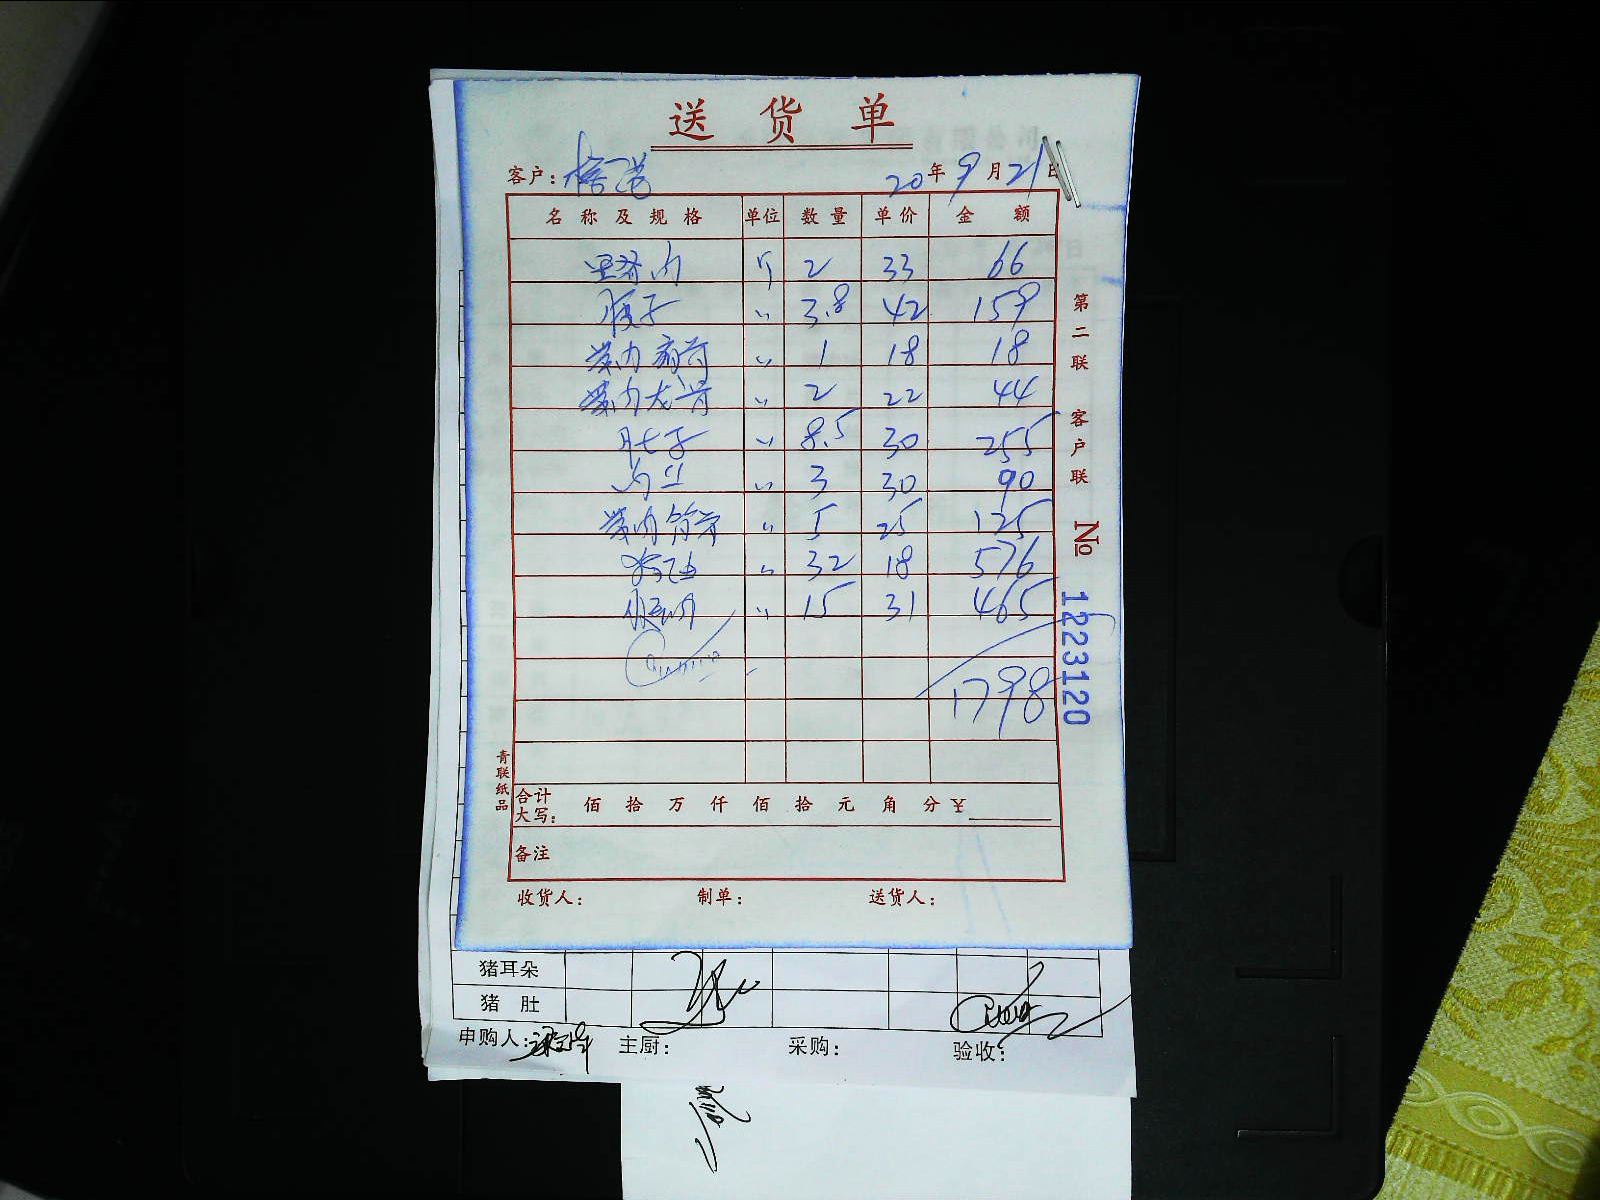 送货单
客户: 20年9月21日
名称及规格 单位 数量 单价 金额
里脊肉 斤 2 33 66
腰子 〃 3.8 42 159
带肉扇骨 〃 1 18 18
带肉龙骨 〃 2 22 44
肚子 〃 8.5 30 255
肉丝 〃 3 30 90
带肉筒骨 〃 5 25 125
〃 32 18 576
〃 15 31 465
1798
合计大写: 佰 拾 万 仟 佰 拾 元 角 分 ¥
备注
收货人: 制单: 送货人:
青联纸品
第二联 客户联 № 1223120
猪耳朵
猪肚
申购人: 主厨: 采购: 验收: